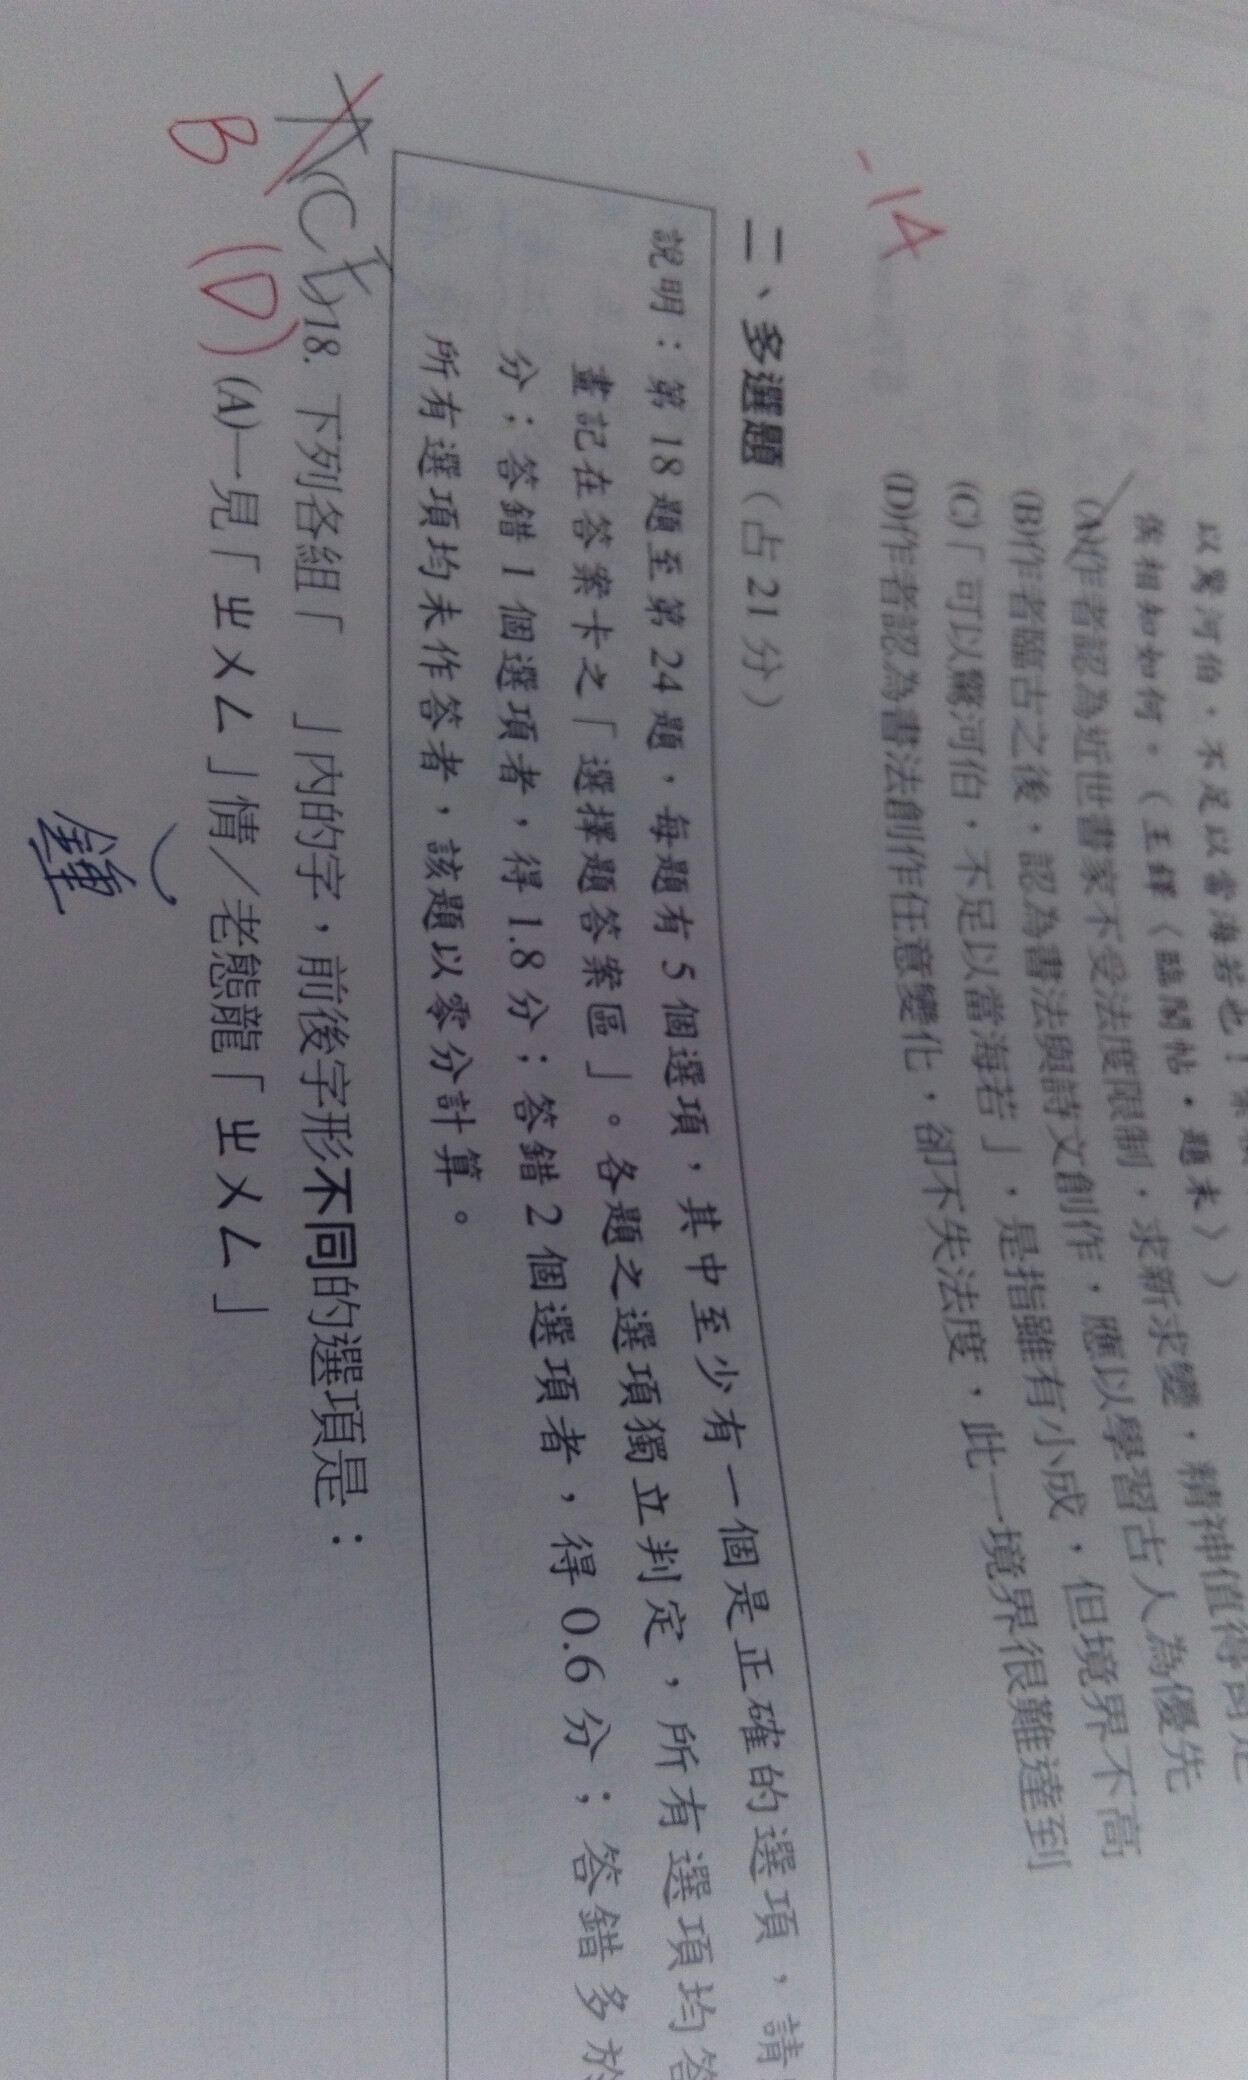 以驚河伯，不足以當海若也！
侯相如如何。（王鐸〈臨閣帖·題末〉）
(A)作者認為近世書家不受法度限制，求新求變，精神值得
(B)作者臨古之後，認為書法與詩文創作，應以學習古人為優先
(C)「可以驚河伯，不足以當海若」，是指雖有小成，但境界不高
(D)作者認為書法創作任意變化，卻不失法度，此一境界很難達到
-14
二、多選題（占 21 分）
說明：第 18 題至第 24 題，每題有 5 個選項，其中至少有一個是正確的選項，請
畫記在答案卡之「選擇題答案區」。各題之選項獨立判定，所有選項均答
分；答錯 1 個選項者，得 1.8 分；答錯 2 個選項者，得 0.6 分；答錯多於
所有選項均未作答者，該題以零分計算。
18. 下列各組「 」內的字，前後字形不同的選項是：
B (D)
(A)一見「ㄓㄨㄥ」情／老態龍「ㄓㄨㄥ」
鍾